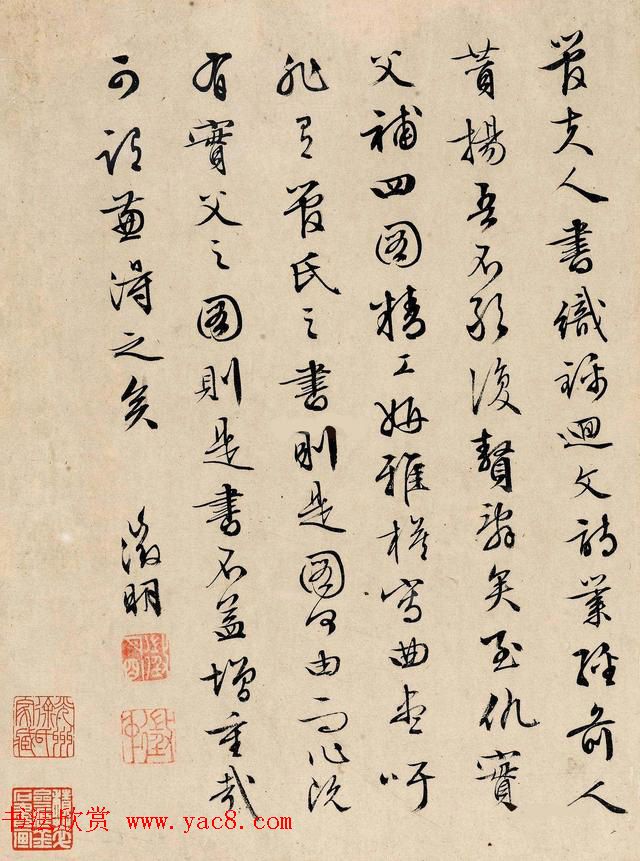 管夫人書織錦迴文詩業經前人
贊揚吾不能復贅辭矣至仇實
父補四圖精工妍雅模寫曲盡吁
非有管氏之書則是圖何由而作
有實父之圖則是書不益增重哉
可謂兼得之矣
徵明
书法欣赏 www.yac8.com